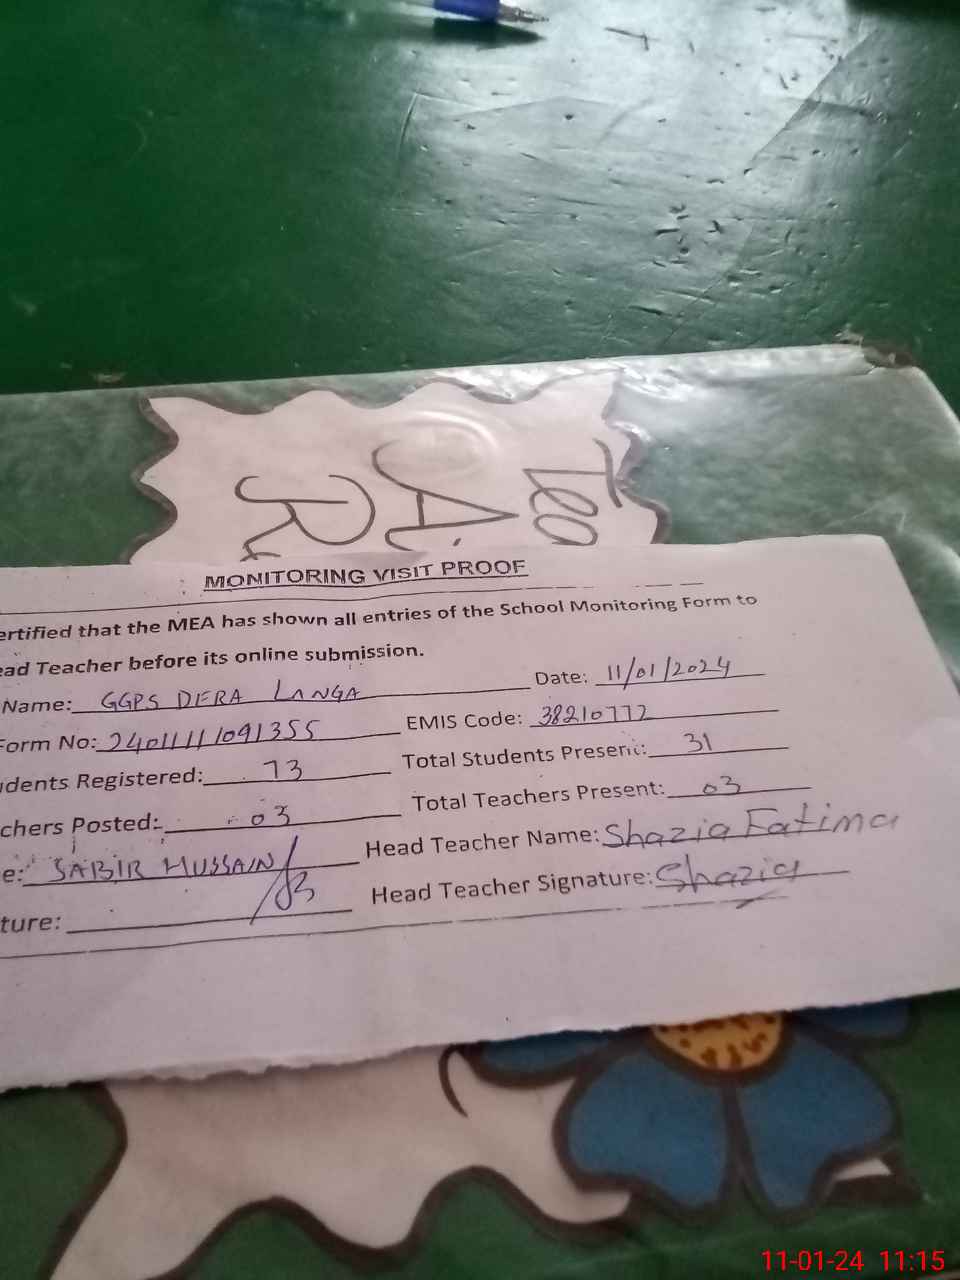 MONITORING VISIT PROOF
ertified that the MEA has shown all entries of the School Monitoring Form to
ead Teacher before its online submission.
Name: GGPS DERA LANGA Date: 11/01/2024
Form No: 2401111091355 EMIS Code: 38210772
udents Registered: 73 Total Students Present: 31
chers Posted: 03 Total Teachers Present: 03
e: SABIR HUSSAIN Head Teacher Name: Shazia Fatima
ture: Head Teacher Signature: Shazia
11-01-24 11:15